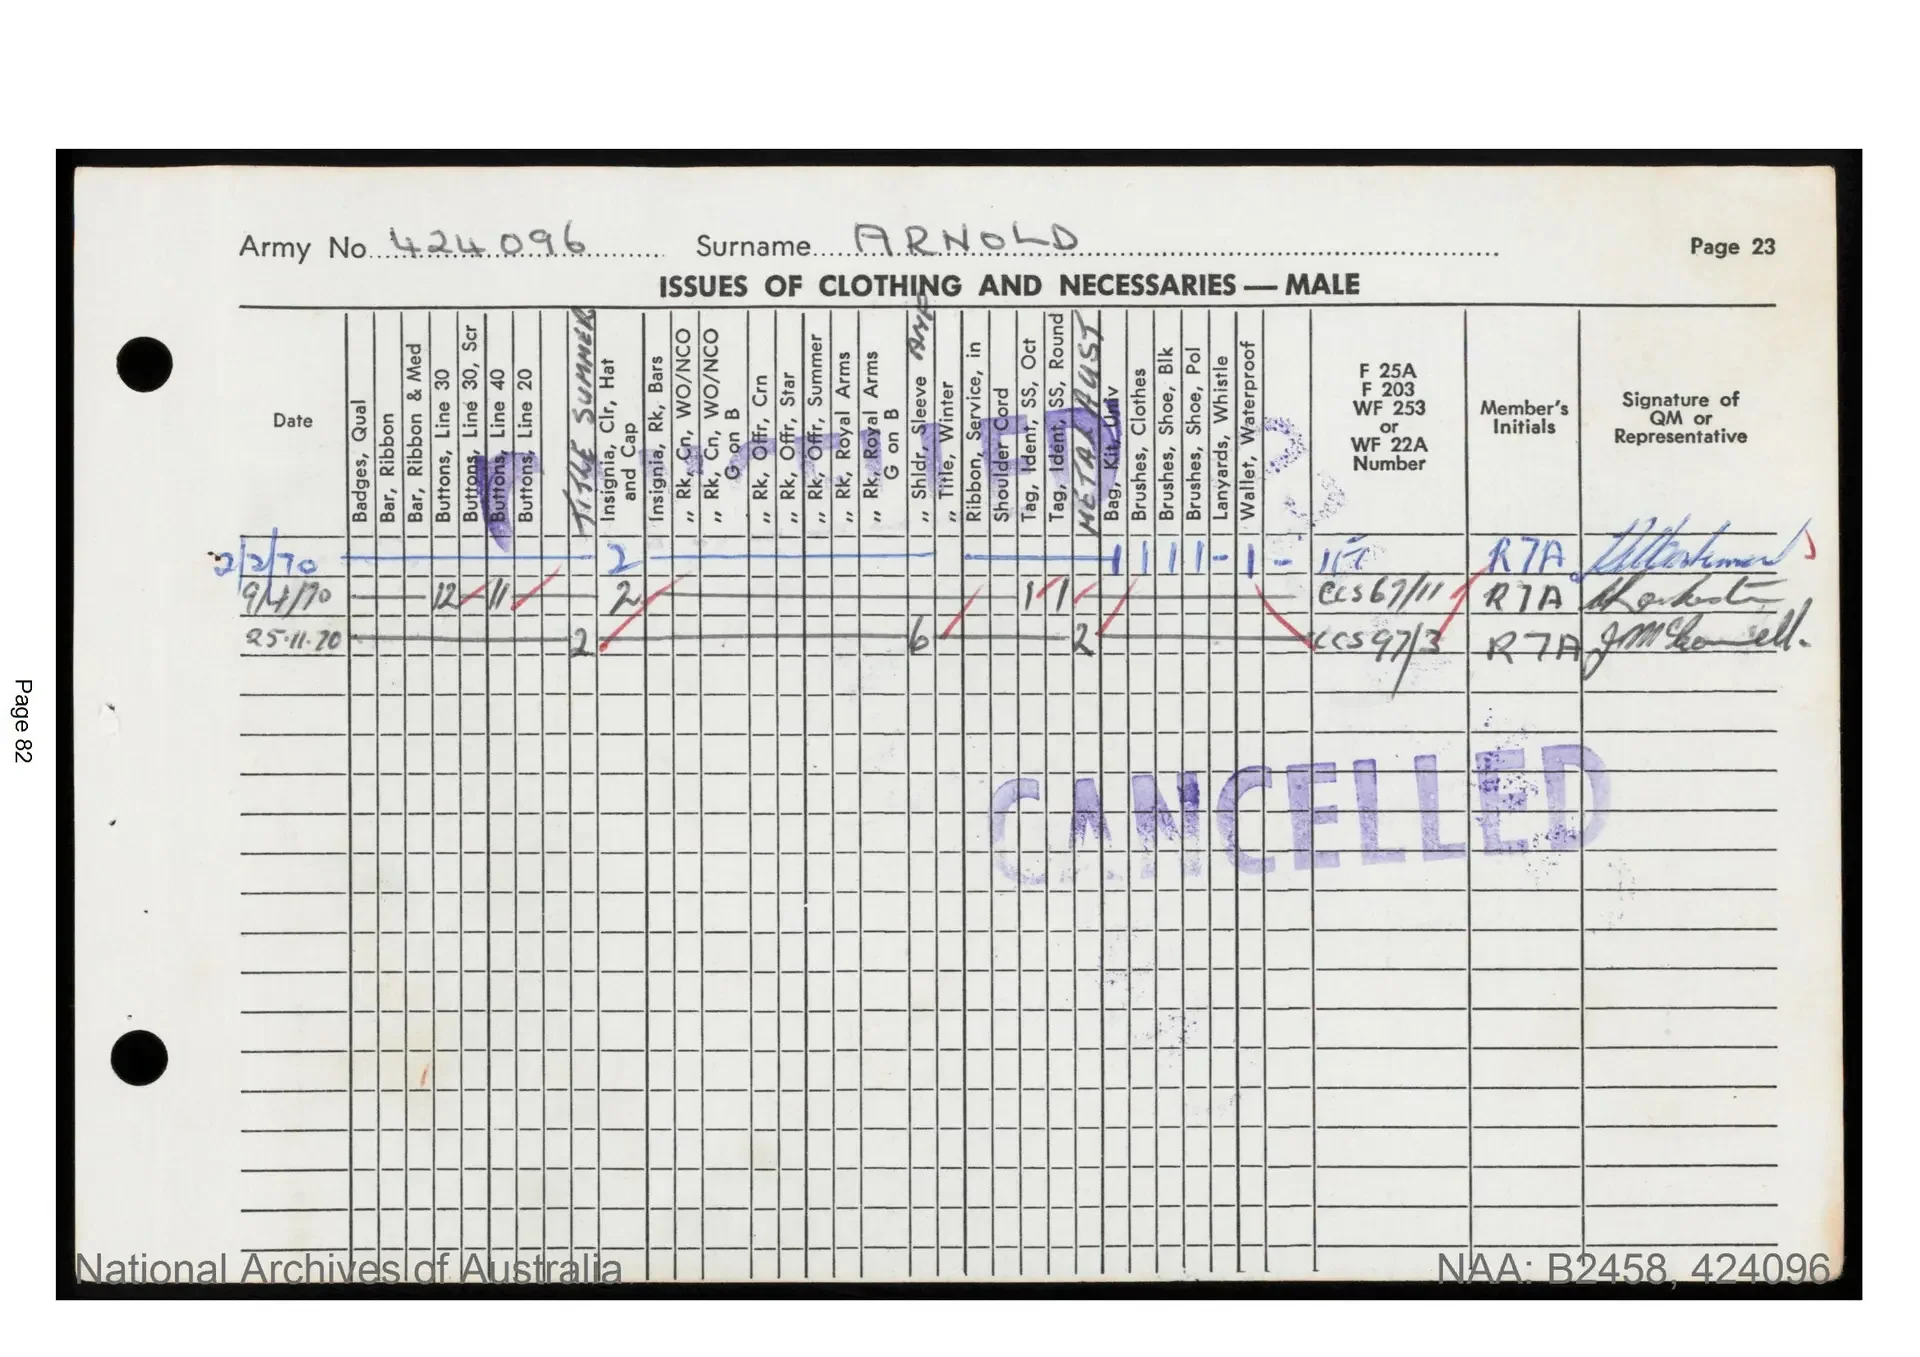 Army No. 424096 Surname ARNOLD Page 23
ISSUES OF CLOTHING AND NECESSARIES — MALE
Date
Badges, Qual
Bar, Ribbon
Bar, Ribbon & Med
Buttons, Line 30
Buttons, Line 30, Scr
Buttons, Line 40
Buttons, Line 20
TITLE SUMMER
Insignia, Clr, Hat and Cap
Insignia, Rk, Bars
„ Rk, Cn, WO/NCO
„ Rk, Cn, WO/NCO G on B
„ Rk, Offr, Crn
„ Rk, Offr, Star
„ Rk, Offr, Summer
„ Rk, Royal Arms
„ Rk, Royal Arms G on B
„ Shldr, Sleeve AMF
„ Title, Winter
Ribbon, Service, in
Shoulder Cord
Tag, Ident, SS, Oct
Tag, Ident, SS, Round
METAL AUST
Bag, Kit, Univ
Brushes, Clothes
Brushes, Shoe, Blk
Brushes, Shoe, Pol
Lanyards, Whistle
Wallet, Waterproof
F 25A
F 203
WF 253
or
WF 22A
Number
Member's
Initials
Signature of
QM or
Representative
CANCELLED
2/2/70 2 1 1 1 1 - 1 - R7A
9/4/70 12 11 2 1 1 CCS67/11 R7A
25.11.70 2 6 2 CCS97/3 R7A
CANCELLED
Page 82
National Archives of Australia NAA: B2458, 424096